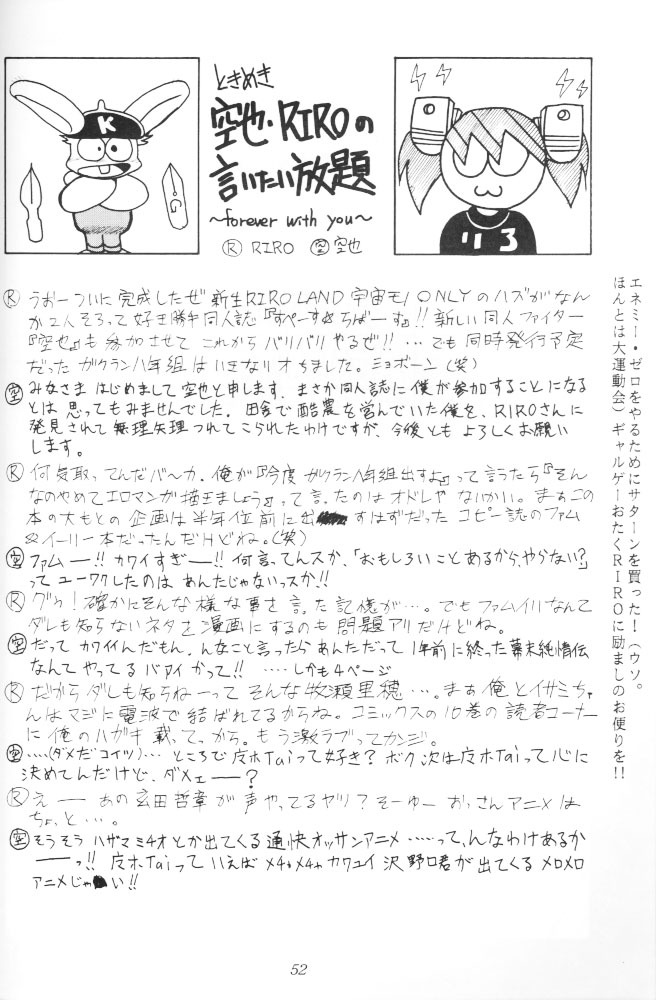 ときめき
空也・RIROの
言いたい放題
~forever with you~
Ⓡ RIRO ㊢空也
K
G
リ 3
Ⓡ うおーついに完成したぜ 新生RIRO LAND 宇宙モノONLYのハズがなん
か2人そろって好き勝手同人誌『すぺーす☆ちばーす』!! 新しい同人ファイター
『空也』も参加させて これからバリバリやるぜ!! …でも同時発行予定
だった ガクラン八年組は いきなりオチました。ミョボーン(笑)
空 みなさま はじめまして 空也と申します。まさか同人誌に僕が参加することになる
とは 思ってもみませんでした。田舎で酪農を営んでいた僕を、RIROさんに
発見されて無理矢理 つれてこられたわけですが、今後とも よろしくお願い
します。
Ⓡ 何気取ってんだバ〜カ。俺が『今度 ガクラン八年組出すよ』って言うたら『そん
なのやめてエロマンガ描きましょう』って言ったのは オドレや ないかい。まぁこの
本の大もとの 企画は半年位前に出 すはずだった コピー誌のファム
&イーリー本だったんだけどね。(笑)
空 ファムー!! カワイすぎー!! 何言ってんスか、「おもしろいことあるから、やらない?」
って ユーワクしたのは あんたじゃないっスか!!
Ⓡ グウ! 確かにそんな様な事を言った記憶が…。でもファムイリなんて
ダレも知らないネタを漫画にするのも 問題アリだけどね。
空 だって カワイんだもん。んなこと言ったらあんただって 1年前に終った幕末純情伝
なんて やってる バァイ かって!! ……しかも4ページ
Ⓡ だからダレも知らねーって そんな牧瀬里穂…。まぁ俺とイサミちゃ
んはマジに電波で結ばれてるからね。コミックスの10巻の読者コーナー
に俺のハガキ載ってっから。もう激ラブってカンジ。
空 ……(ダメだコイツ)… ところで 皮ホTaiって好き? ボク次は皮ホTaiって心に
決めてんだけど、ダメェ――?
Ⓡ え―― あの玄田哲章が声やってるヤツ? そーゆー おっさんアニメは
ちょっと…。
空 そうそう ハザマミチオとか出てくる 通快オッサンアニメ ……って、んなわけあるか
――っ!! 皮ホTaiって いえば メチャメチャ カワユイ 沢野口君が出てくる メロメロ
アニメじゃ い!!
エネミー・ゼロをやるためにサターンを買った!(ウソ。
ほんとは大運動会)ギャルゲーおたくRIROに励ましのお便りを!!
52